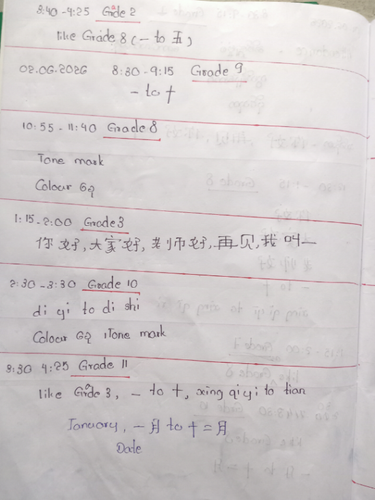 8:40-9:25 Grade 2
like Grade 8 (一 to 五)
02.06.2026 8:30-9:15 Grade 9
一 to 十
10:55-11:40 Grade 8
Tone mark
Colour
1:15-2:00 Grade 3
你好, 大家好, 老师好, 再见, 我叫—
2:30-3:30 Grade 10
di yi to di shi
Colour Tone mark
8:30 9:25 Grade 11
like Grade 3, 一 to 十, xing qi yi to tian
January, 一月 to 十二月
Date